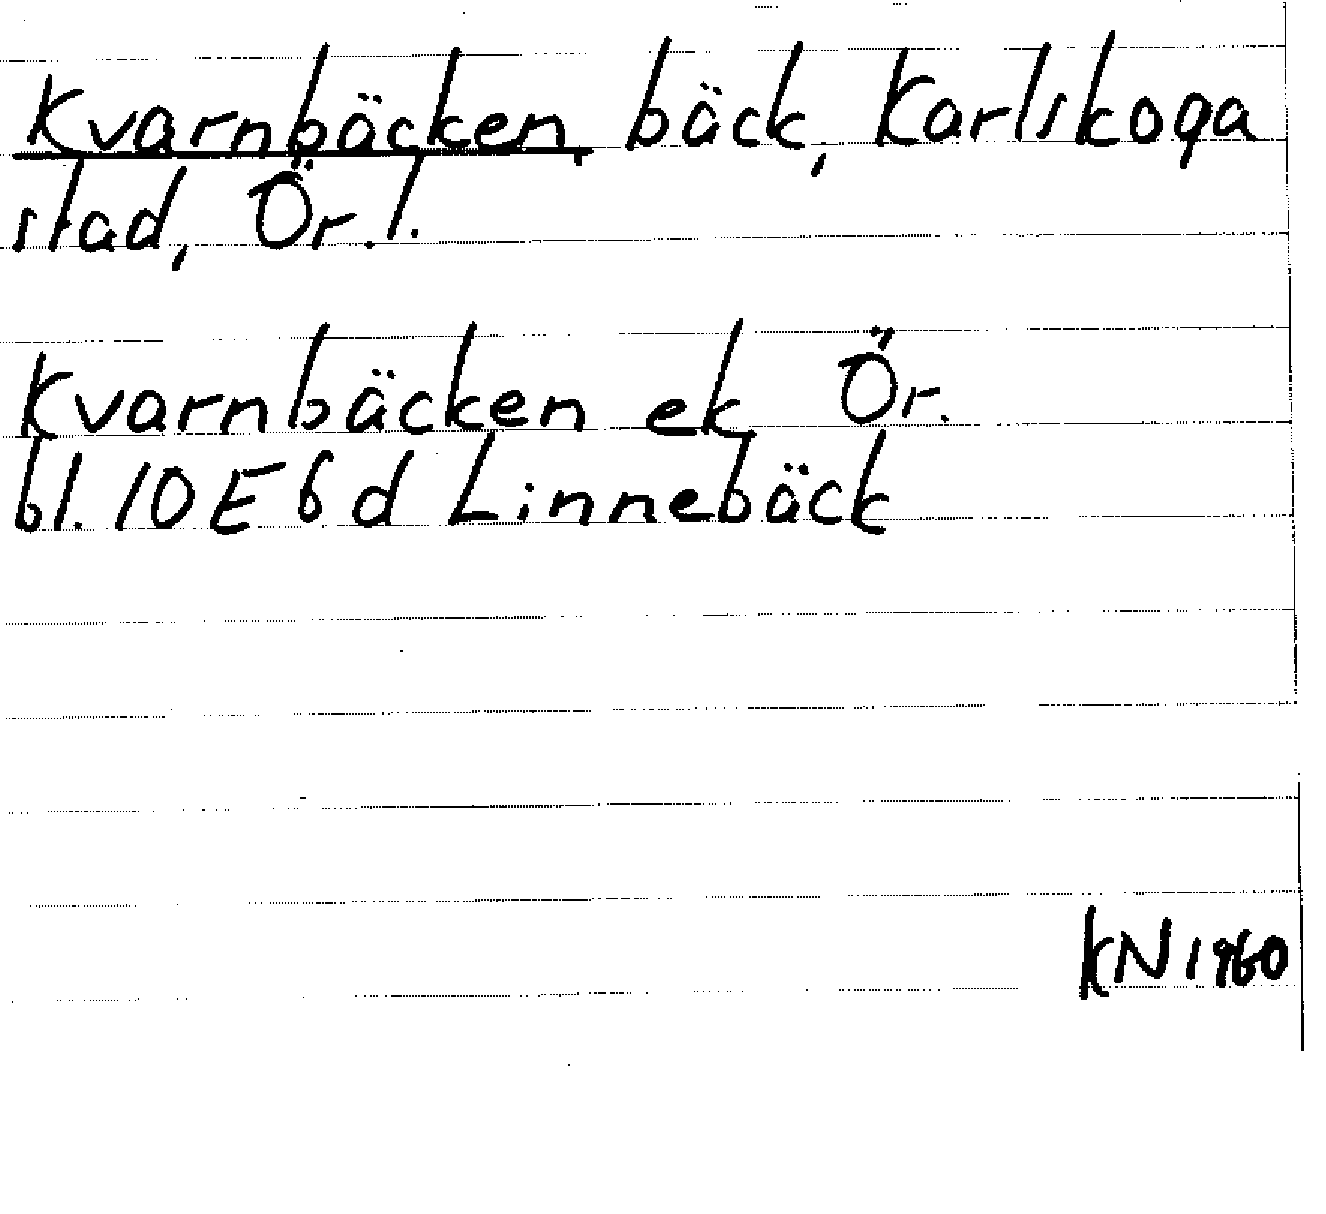 Kvarnbäcken, bäck, Karlskoga
stad, Ör.l.
Kvarnbäcken ek Ör.
bl. 10E6d Linnebäck
KN 1960